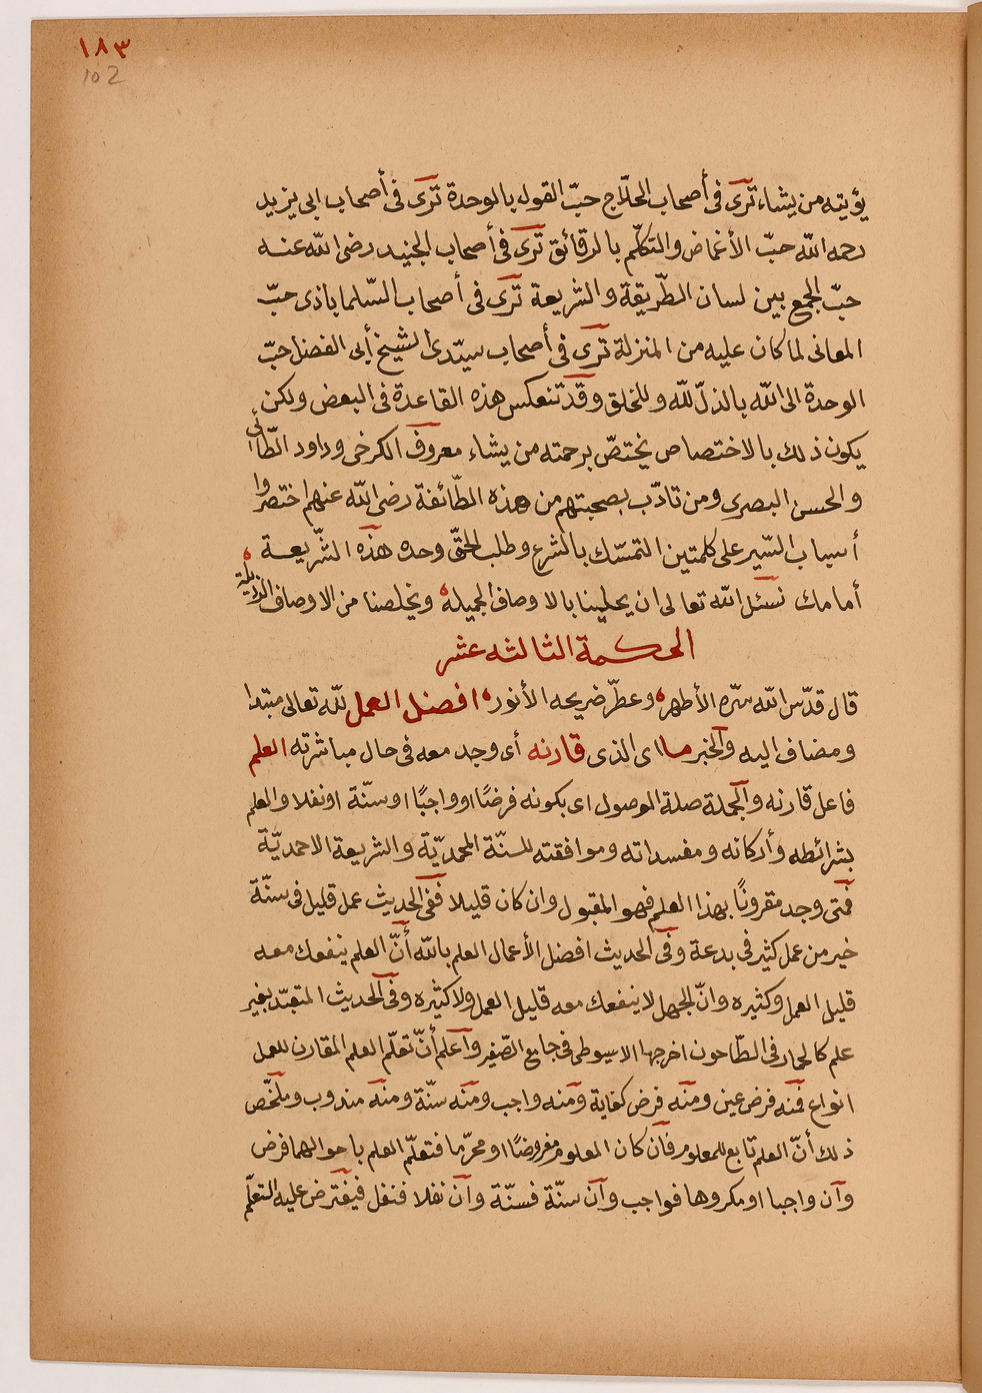 ١٨٣
102
يؤيته من يشاء ترى فى أصحاب الحلّاج حبّ القول بالوحدة ترى فى أصحاب ابى يزيد
رحمه الله حبّ الأغماض والتكلّم بالرقائق ترى فى أصحاب الجنيد رضى الله عنه
حبّ الجمع بين لسان الطّريقة والشريعة ترى فى أصحاب السّلماباذى حبّ
المعانى لما كان عليه من المنزلة ترى فى أصحاب سيّدى الشيخ أبى الفضل حبّ
الوحدة الى الله بالذلّ لله وللخلق وقد تنعكس هذه القاعدة فى البعض ولكن
يكون ذلك بالاختصاص يختصّ برحمته من يشاء معروف الكرخى وداود الطّائى
والحسن البصرى ومن تادّب بصحبتهم من هذه الطّائفة رضى الله عنهم اختصروا
أسباب السّير على كلمتين التمسّك بالشرع وطلب الحقّ وحده هذه الشّريعة
أمامك نسئل الله تعالى ان يحلينا بالاوصاف الجميلة ويخلصنا من الاوصاف الرّذيلة
الحكمة الثالثه عشر
قال قدّس الله سرّه الأطهر وعطّر ضريحه الأنور افضل العمل لله تعالى مبتدا
ومضاف اليه والخبر ما اى الذى قارنه أى وجد معه فى حال مباشرته العلم
فاعل قارنه والجملة صلة الموصول اى بكونه فرضًا او واجبًا او سنّة او نفلا والعلم
بشرائطه وأركانه ومفسداته وموافقته للسنّة المحمديّة والشريعة الاحمديّة
فمتى وجد مقرونًا بهذا العلم فهو المقبول وان كان قليلا ففى الحديث عمل قليل فى سنّة
خير من عمل كثير فى بدعة وفى الحديث افضل الأعمال العلم بالله أنّ العلم ينفعك معه
قليل العمل وكثيره وانّ الجهل لا ينفعك معه قليل العمل ولا كثيره وفى الحديث المتعبّد بغير
علم كالحمار فى الطّاحون اخرجها الاسيوطى فى جامع الصّغير وأعلم أنّ تعلّم العلم المقارن للعمل
انواع فمنه فرض عين ومنه فرض كفاية ومنه واجب ومنه سنّة ومنه مندوب وملخّص
ذلك أنّ العلم تابع للمعلوم فان كان المعلوم مفروضًا او محرّما فتعلّم العلم باحوالهما فرض
وان واجبا او مكروها فواجب وان سنّة فسنّة وان نفلا فنفل فيفترض عليه التعلّم